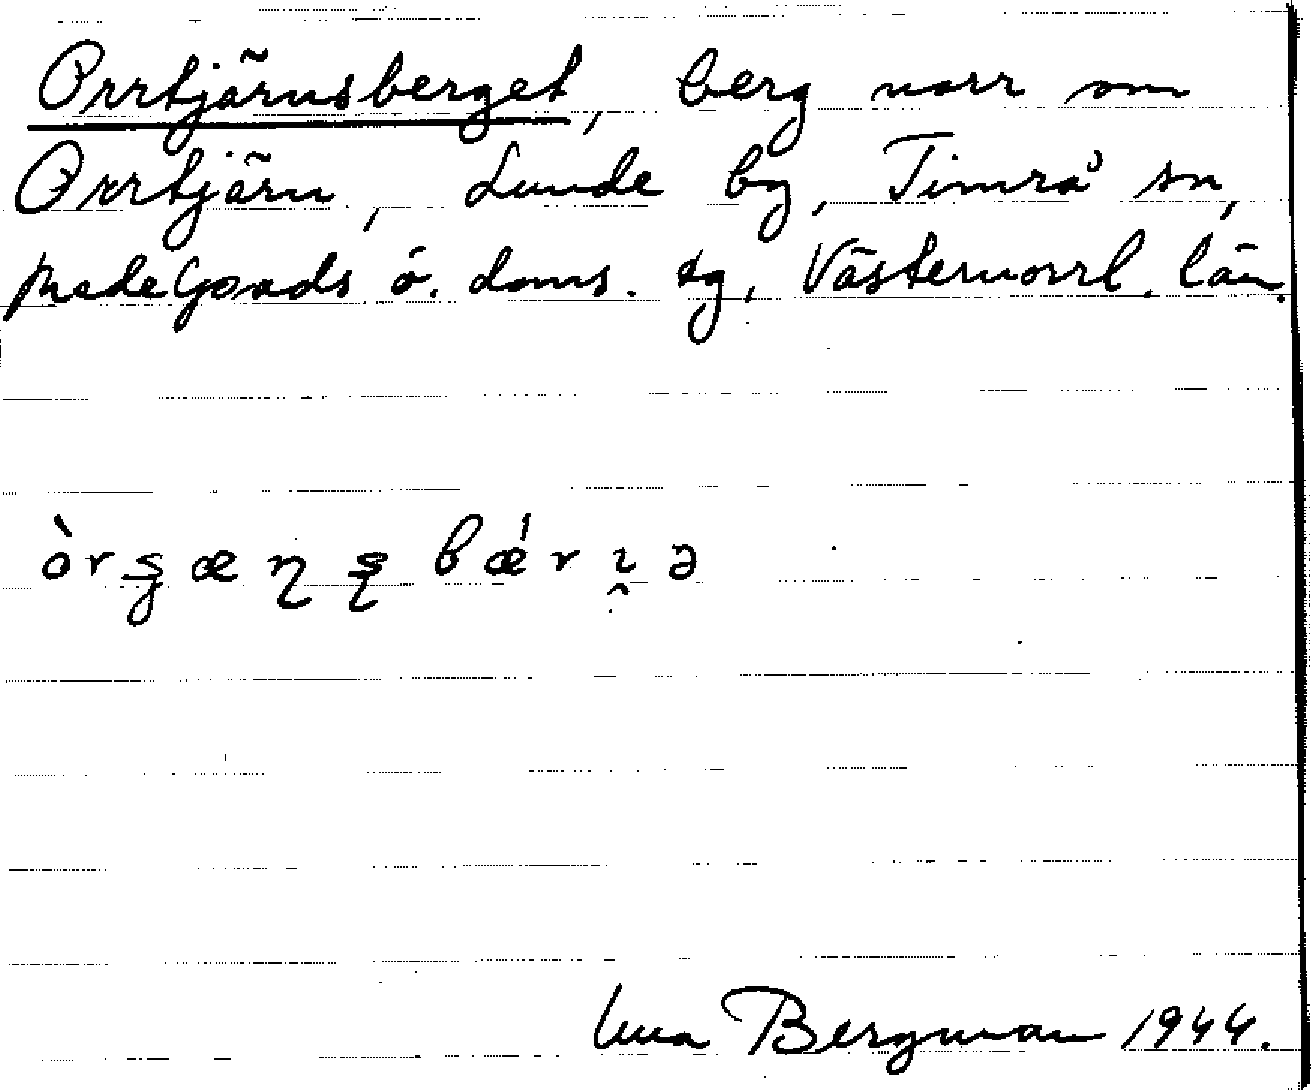 Orrtjärnsberget, berg norr om
Orrtjärn, Lunde by, Timrå sn,
Medelpads ö. doms. tg, Västernorrl. län.
òrs̠æɳʂbǽrɪ̯ə
Bergman 1944.